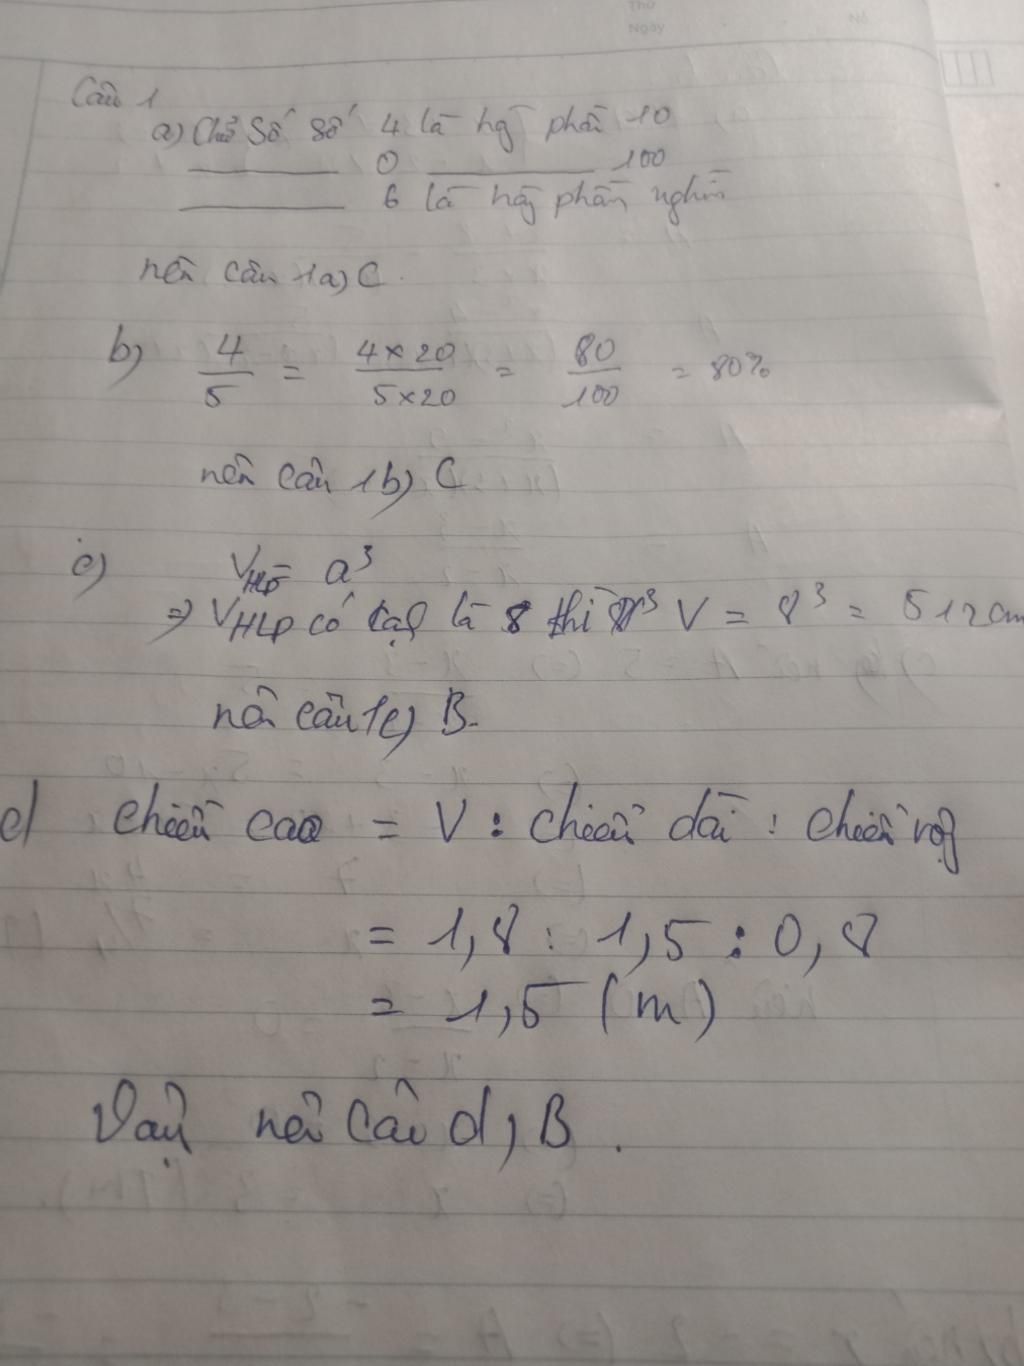 Thứ
Ngày
No
Câu 1
a) Chữ số số 4 là hg phần 10
0 100
6 là hàng phần nghìn
nên câu 1a) C.
b) 4/5 = 4×20/5×20 = 80/100 = 80%
nên câu 1b) C
c) VHLP = a³
=> VHLP có cạnh là 8 thì V = 8³ = 512 cm
nên câu 1c) B.
d chiều cao = V : chiều dài : chiều rộng
= 1,8 : 1,5 : 0,8
= 1,5 (m)
Vậy nên câu d, B.